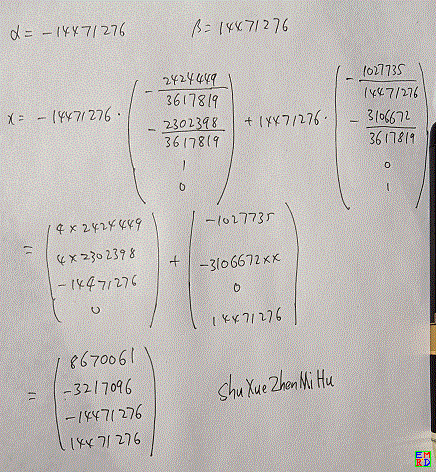 α = -14471276 β = 14471276
x = -14471276 · ( -2424449/3617819 -2302398/3617819 1 0 ) + 14471276 · ( -1027735/14471276 -3106672/3617819 0 1 )
= ( 4×2424449 4×2302398 -14471276 0 ) + ( -1027735 -3106672×× 0 14471276 )
= ( 8670061 -3217096 -14471276 14471276 )
ShuXueZhenMiHu
EM
RD